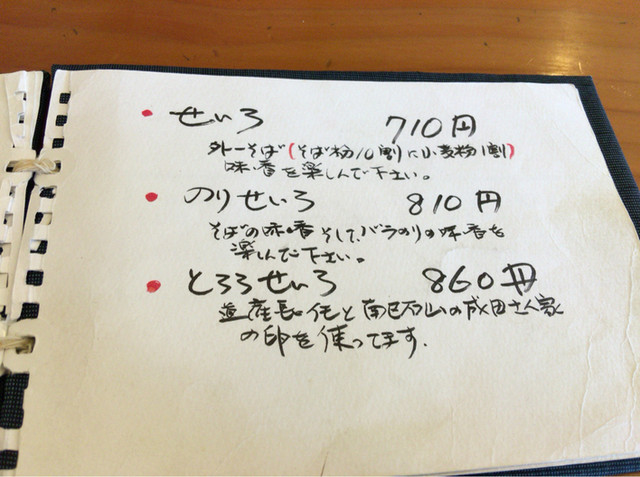 • せいろ 710円
外一そば(そば粉10割に小麦粉1割)
味・香を楽しんで下さい。
• のりせいろ 810円
そばの味・香そして、バラのりの味・香を
楽しんで下さい。
• とろろせいろ 860円
道産長イモと 南巳万山の成田さん家
の卵を使ってます.